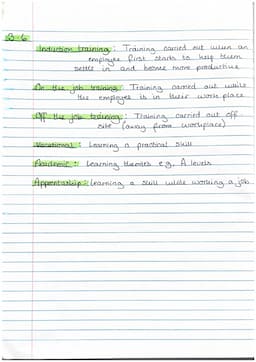 3-6
Induction training : Training carried out when an
employee first starts to help them
settle in and become more productive
On the job training : Training carried out while
the employee is in their work place
Off the job training : Training carried out off
site (away from workplace)
Vocational : Learning a practical skill
Academic : Learning theories e.g. A levels
Apprentiship : Learning a skill while working a job